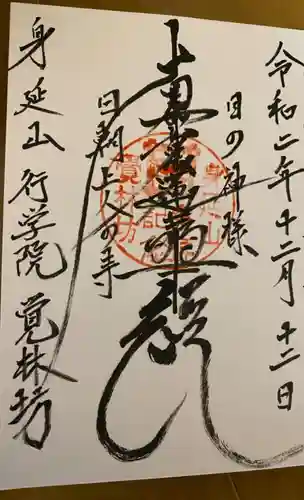 令和二年十二月十二日
日の神様
南無妙法蓮華経
日朝上人の寺
身延山 行学院 覚林坊